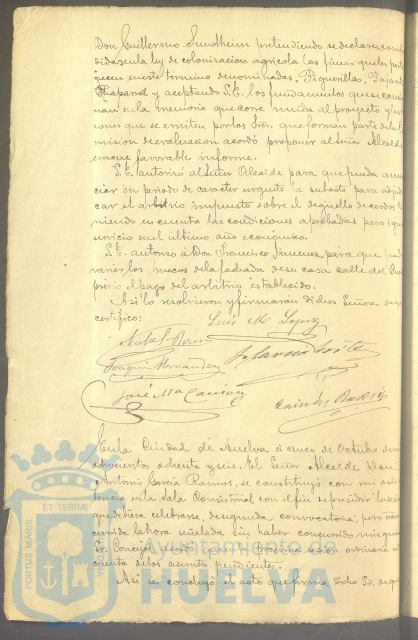 Don Guillermo Sundheim pretendiendo se declaren com
didas en la ley de colonizacion agricola las fincas que les per
necen en este término denominadas, Piguerillas, Pajar
y aceptando S.E. los fundamentos que se con
nan en la memoria que corre unida al proyecto y
ones que se emiten por los Sres. que forman parte de la
mision de evaluacion acordó proponer al Señor Alcalde
evacue favorable informe.
S.E. autorizó al Señor Alcalde para que pueda anun
ciar en periodo de caracter urgente la subasta para adju
car el arbitrio impuesto sobre el degüello de cerdos, te
niendo en cuenta las condiciones aprobadas para igua
servicio en el último año económico.
S.E. autorizó a Don Francisco Jimenez, para que pue
variar los huecos de la fachada de su casa calle del
previo el pago del arbitrio establecido.
Asi lo resolvieron y firmarán dichos Señores de que
certifico:
Luis M. Lopez
Joaquin Hernandez
José Ma
En la Ciudad de Huelva a cinco de Octubre de mi
ochocientos ochenta y seis. el Señor Alcalde Don
Antonio Garcia Ramos, se constituyó con mi asis
tencia en la Sala Consistorial con el fin de presidir la sesion
que debiera celebrarse, de segunda convocatoria; pero tran
currida la hora señalada sin haber concurrido ningun
Sr. Concejal, acordó que en la procsima sesion ordinaria se
cuenta de los asuntos pendientes.
Asi se concluyó el acto que firma dicho Sr. de que
PORTUS MARIS
ET TERRAE
Ayuntamiento de
HUELVA